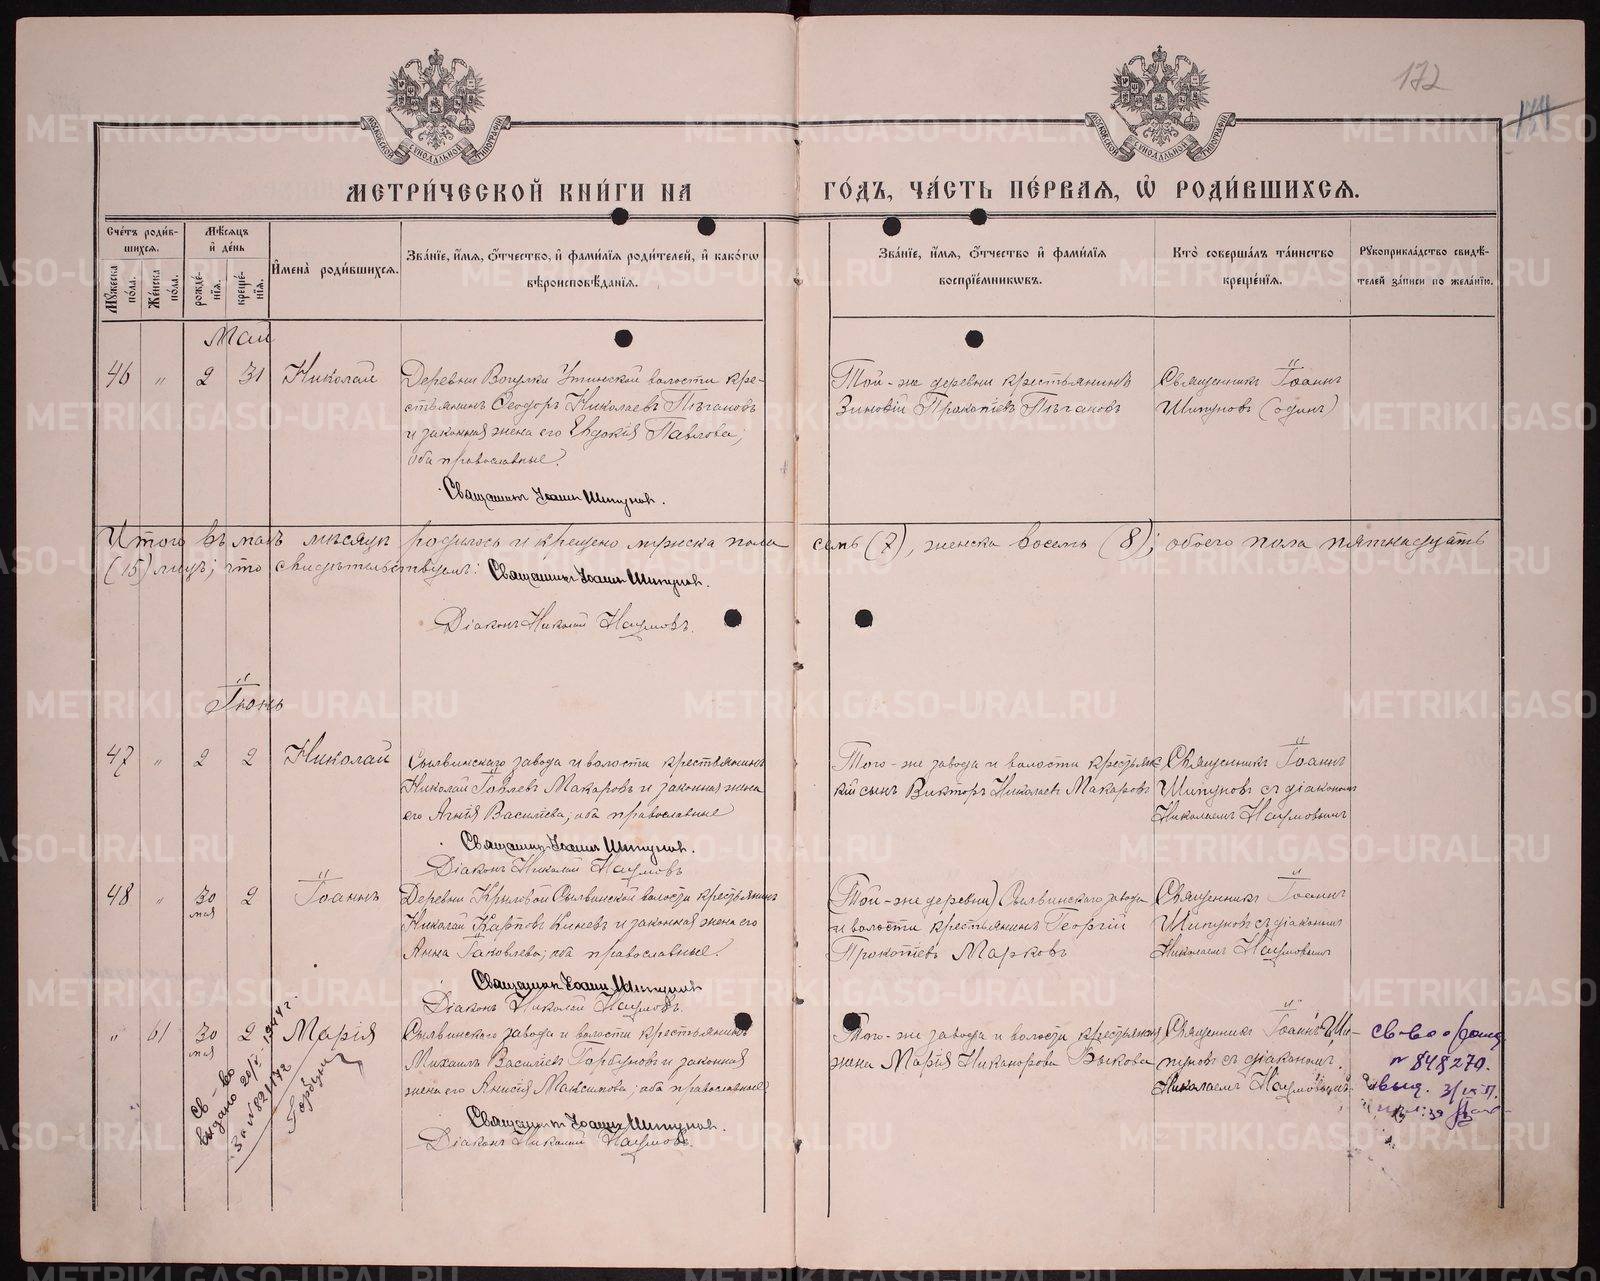 172
174
МОСКОВСКОЙ СѴНОДАЛЬНОЙ ТИПОГРАФІИ
МОСКОВСКОЙ СѴНОДАЛЬНОЙ ТИПОГРАФІИ
МЕТРИ́ЧЕСКОЙ КНИ́ГИ НА ГО́ДЪ, ЧА́СТЬ ПЕ́РВАЯ, Ѽ РОДИ́ВШИХСЯ.
Сче́тъ роди́вшихся.
Му́жеска по́ла.
Же́нска по́ла.
Мѣ́сяцъ и де́нь
рожде́нія.
креще́нія.
Имена̀ роди́вшихся.
Зва́ніе, и́мя, ѻ́тчество, и фами́лія роди́телей, и како́гѡ вѣроисповѣ́данія.
Зва́ніе, и́мя, ѻ́тчество и фами́лія воспріе́мникѡвъ.
Кто̀ соверша́лъ та́инство креще́нія.
Рукоприкла́дство свидѣ́телей за́писи по жела́нію.
Май
46 " 2 31 Николай
Деревни Вогулки Утинской волости кре-
стьянинъ Ѳеодоръ Николаевъ Пѣгановъ
и законная жена его Евдокія Павлова;
оба православные.
Священникъ Іоаннъ Шипуновъ.
Той-же деревни крестьянинъ
Зиновій Прокопіевъ Пѣгановъ
Священникъ Іоаннъ
Шипуновъ (одинъ)
Итого въ маѣ мѣсяцѣ родилось и крещено мужска пола семь (7), женска восемь (8); обоего пола пятнадцать
(15) лицъ; что свидѣтельствуемъ: Священникъ Іоаннъ Шипуновъ.
Діаконъ Николай Наумовъ.
Іюнь
47 " 2 2 Николай
Сылвинскаго завода и волости крестьянинъ
Николай Іовлевъ Макаровъ и законная жена
его Агнія Василіева; оба православные
Священникъ Іоаннъ Шипуновъ.
Діаконъ Николай Наумовъ
Того-же завода и волости крестьянс-
кій сынъ Викторъ Николаевъ Макаровъ
Священникъ Іоаннъ
Шипуновъ съ діакономъ
Николаемъ Наумовымъ
48 " 30 мая 2 Іоаннъ
Деревни Крыловой Сылвинской волости крестьянинъ
Николай Карповъ Киневъ и законная жена его
Анна Іаковлева; оба православные.
Священникъ Іоаннъ Шипуновъ
Діаконъ Николай Наумовъ.
(Той-же деревни) Сылвинскаго завода
и волости крестьянинъ Георгій
Прокопіевъ Марковъ
Священникъ Іоаннъ
Шипуновъ съ діакономъ
Николаемъ Наумовымъ
" 61 30 мая 2 Марія
Сылвинскаго завода и волости крестьянинъ
Михаилъ Василіевъ Горбуновъ и законная
жена его Анисія Максимова; оба православные
Священникъ Іоаннъ Шипуновъ.
Діаконъ Николай Наумовъ.
Того-же завода и волости крестьянская
жена Марія Никанорова Быкова
Священникъ Іоаннъ Ши-
пуновъ съ діакономъ
Николаемъ Наумовымъ
Св-во
выдано
Св-во о рожд
№ 848279.
выд.
METRIKI.GASO-URAL.RU